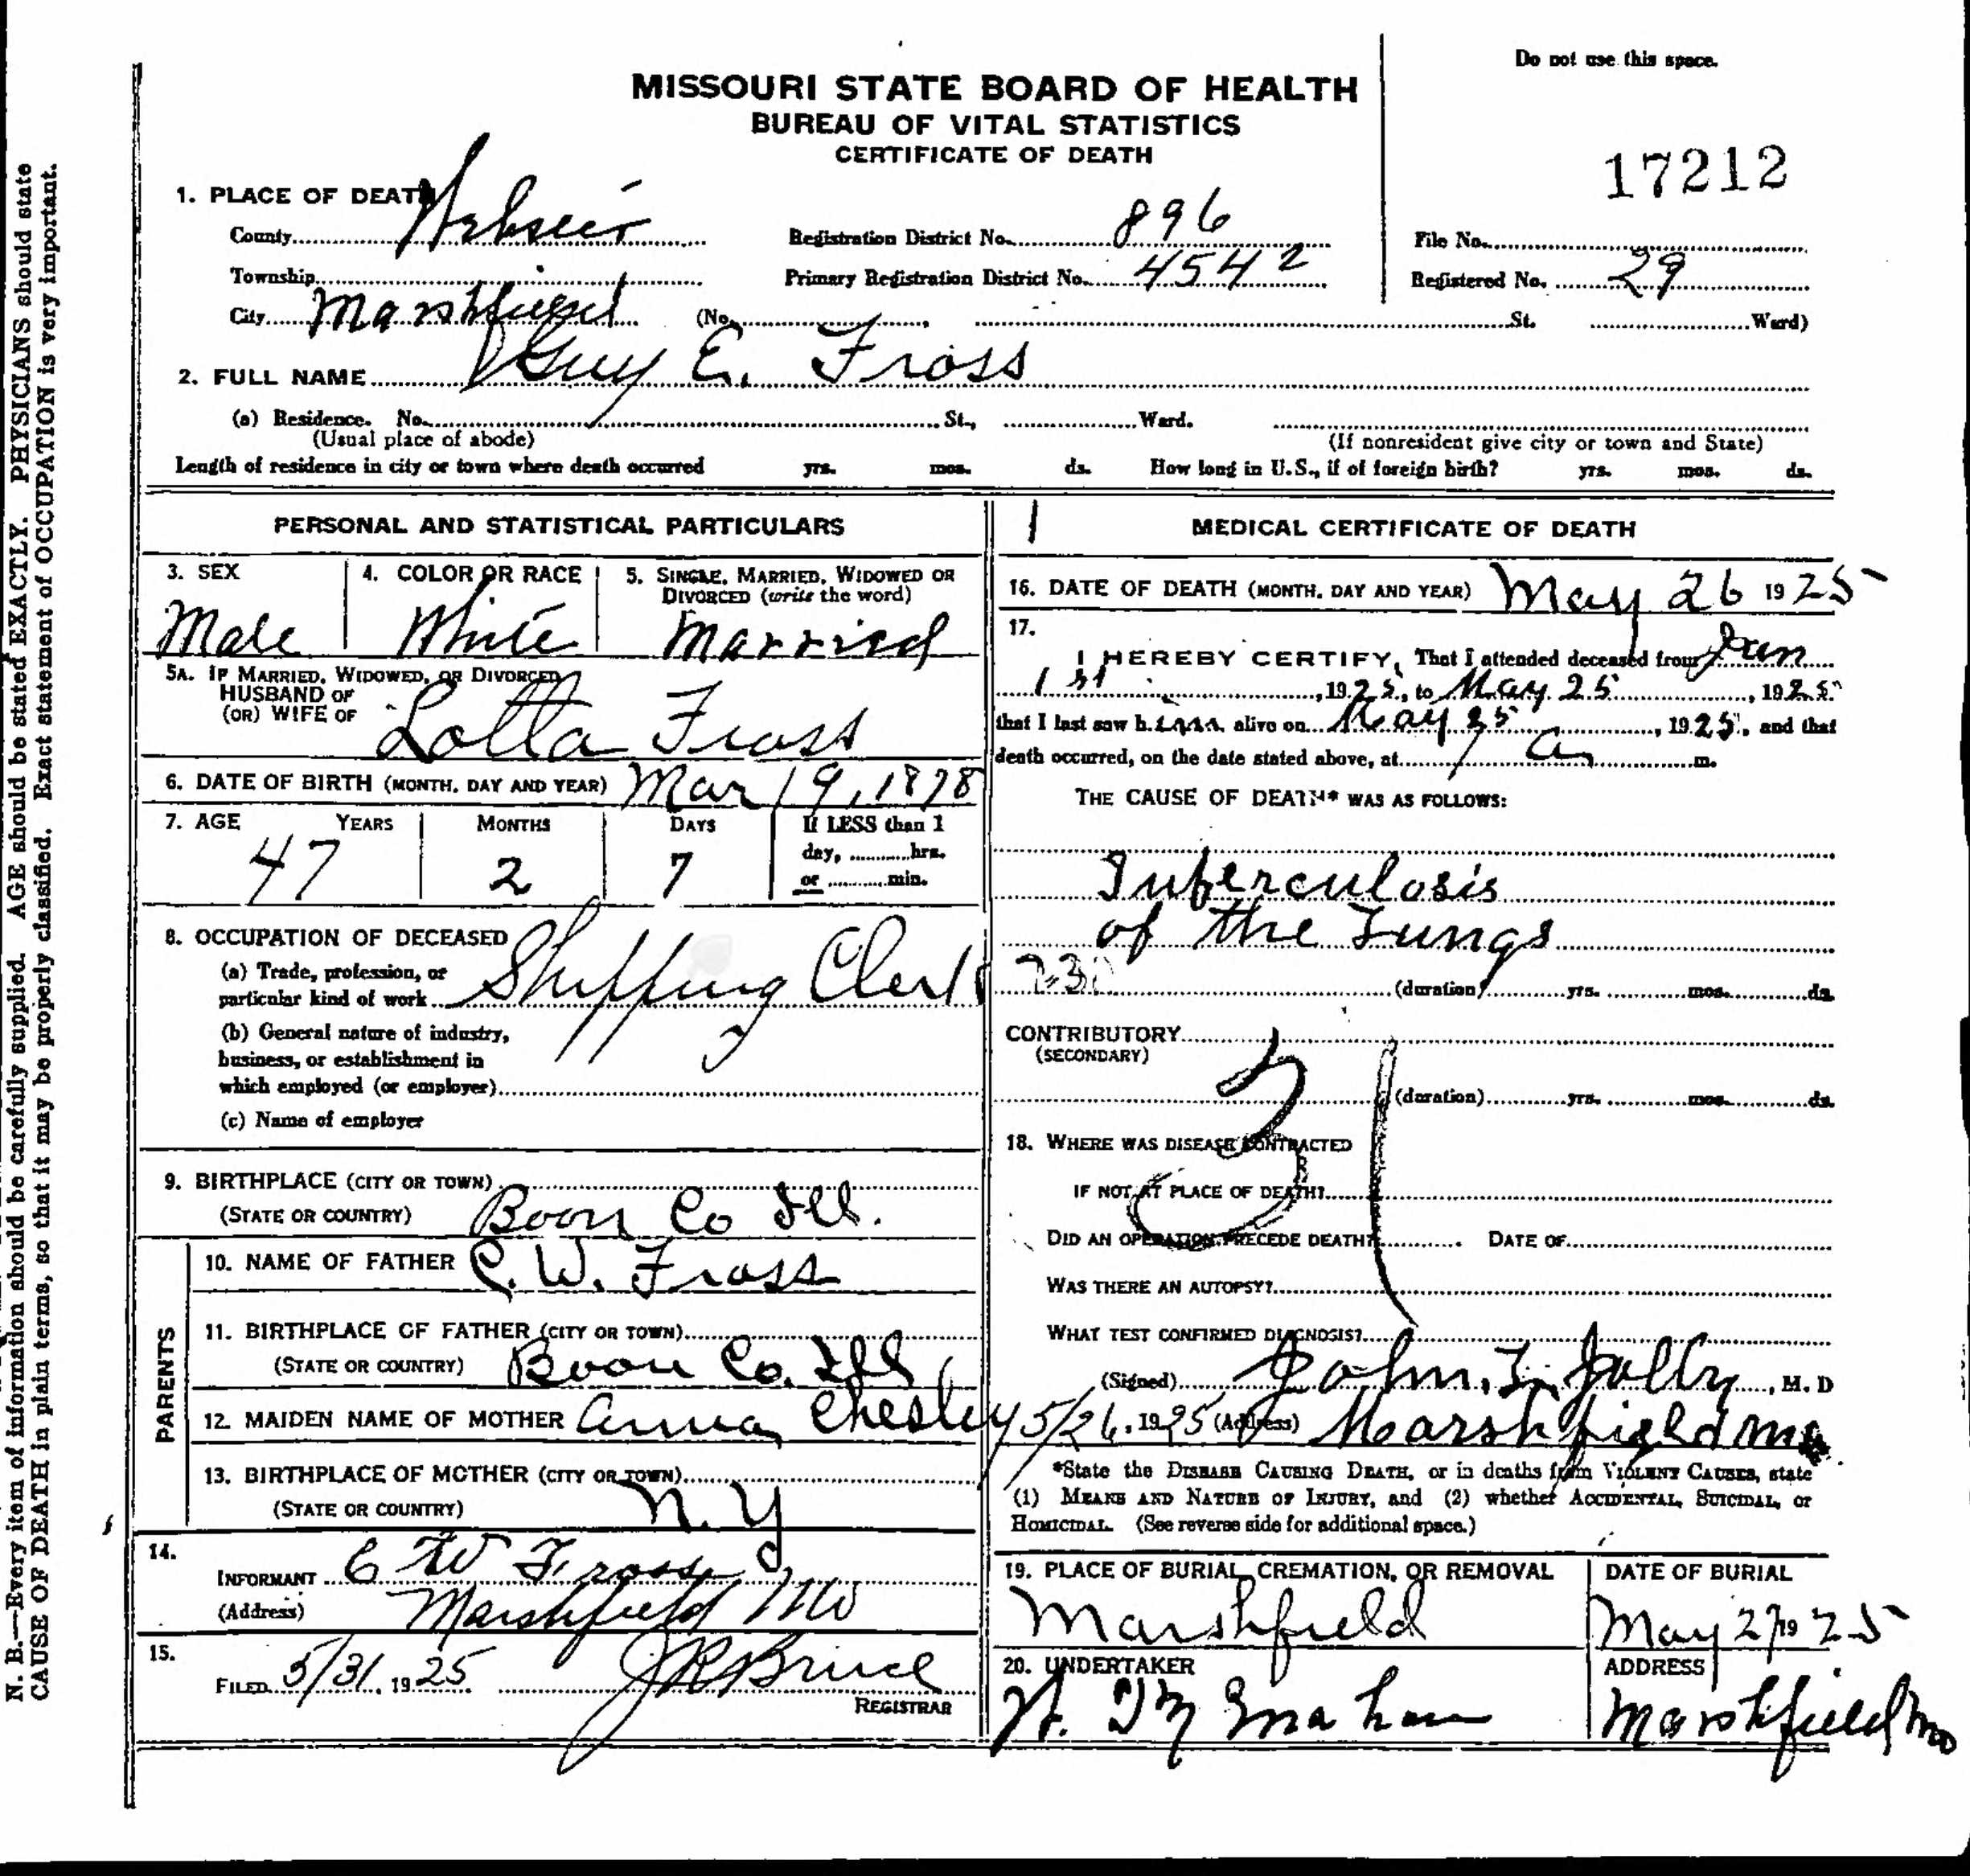 Do not use this space.
MISSOURI STATE BOARD OF HEALTH
BUREAU OF VITAL STATISTICS
CERTIFICATE OF DEATH
17212
1. PLACE OF DEATH
County Webster Registration District No. 896 File No.
Township Primary Registration District No. 4542 Registered No. 29
City Marshfield (No. , St. Ward)
2. FULL NAME Guy E. Fross
(a) Residence. No. St., Ward.
(Usual place of abode) (If nonresident give city or town and State)
Length of residence in city or town where death occurred yrs. mos. ds. How long in U.S., if of foreign birth? yrs. mos. ds.
PERSONAL AND STATISTICAL PARTICULARS
3. SEX 4. COLOR OR RACE 5. SINGLE, MARRIED, WIDOWED OR
DIVORCED (write the word)
Male White Married
5A. IF MARRIED, WIDOWED, OR DIVORCED
HUSBAND OF
(OR) WIFE OF Lotta Fross
6. DATE OF BIRTH (MONTH, DAY AND YEAR) Mar 19, 1878
7. AGE YEARS MONTHS DAYS If LESS than 1
day, hrs.
or min.
47 2 7
8. OCCUPATION OF DECEASED
(a) Trade, profession, or
particular kind of work Shipping Clerk
(b) General nature of industry,
business, or establishment in
which employed (or employer)
(c) Name of employer
9. BIRTHPLACE (CITY OR TOWN)
(STATE OR COUNTRY) Boon Co Ill.
PARENTS
10. NAME OF FATHER C. W. Fross
11. BIRTHPLACE OF FATHER (CITY OR TOWN)
(STATE OR COUNTRY) Boon Co. Ill
12. MAIDEN NAME OF MOTHER Anna Chesley
13. BIRTHPLACE OF MOTHER (CITY OR TOWN)
(STATE OR COUNTRY) N. Y
14.
INFORMANT C W Fross
(Address) Marshfield Mo
15.
FILED 5/31, 1925 J R Bruce
REGISTRAR
1 MEDICAL CERTIFICATE OF DEATH
16. DATE OF DEATH (MONTH, DAY AND YEAR) May 26 1925
17.
I HEREBY CERTIFY, That I attended deceased from Jan
1st, 1925, to May 25, 1925
that I last saw him alive on May 25, 1925, and that
death occurred, on the date stated above, at 1 a m.
THE CAUSE OF DEATH* WAS AS FOLLOWS:
Tuberculosis
of the Lungs
(duration) yrs. mos. ds.
CONTRIBUTORY
(SECONDARY)
31
(duration) yrs. mos. ds.
18. WHERE WAS DISEASE CONTRACTED
IF NOT AT PLACE OF DEATH?
DID AN OPERATION PRECEDE DEATH? DATE OF
WAS THERE AN AUTOPSY?
WHAT TEST CONFIRMED DIAGNOSIS?
(Signed) John. L. Jolly, M. D
5/26, 1925 (Address) Marshfield Mo
*State the DISEASE CAUSING DEATH, or in deaths from VIOLENT CAUSES, state
(1) MEANS AND NATURE OF INJURY, and (2) whether ACCIDENTAL, SUICIDAL, or
HOMICIDAL. (See reverse side for additional space.)
19. PLACE OF BURIAL, CREMATION, OR REMOVAL DATE OF BURIAL
Marshfield May 27 1925
20. UNDERTAKER ADDRESS
Marshfield Mo
N. B.—Every item of information should be carefully supplied. AGE should be stated EXACTLY. PHYSICIANS should state
CAUSE OF DEATH in plain terms, so that it may be properly classified. Exact statement of OCCUPATION is very important.